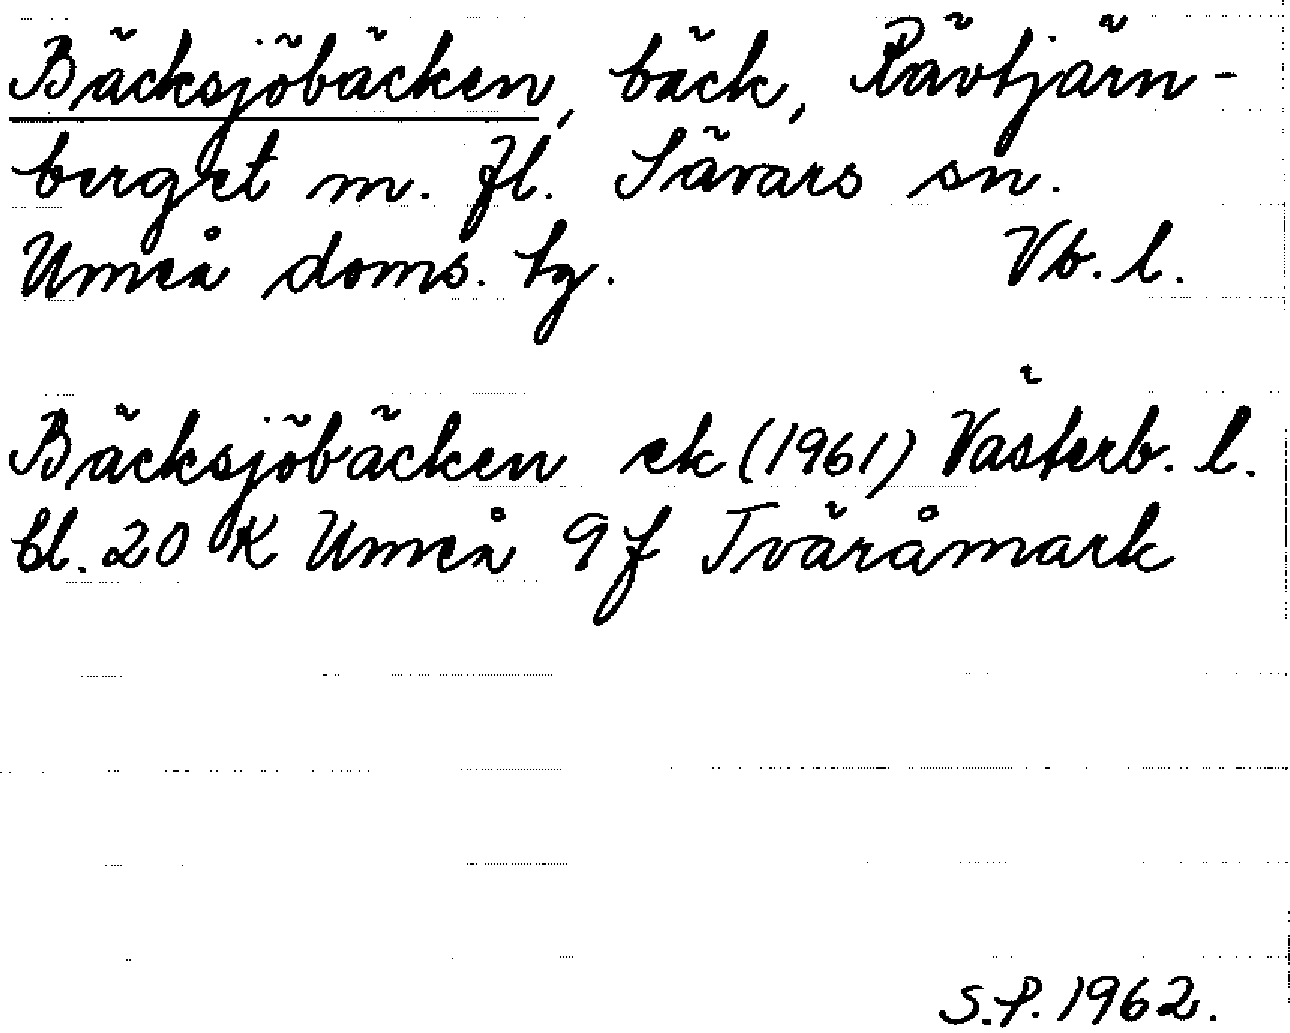 Bäcksjöbäcken, bäck, Rävtjärn-
berget m. fl. Sävars sn.
Umeå doms. tg. Vb. l.
Bäcksjöbäcken ek (1961) Västerb. l.
bl. 20 K Umeå 9 f Tväråmark
S.P. 1962.